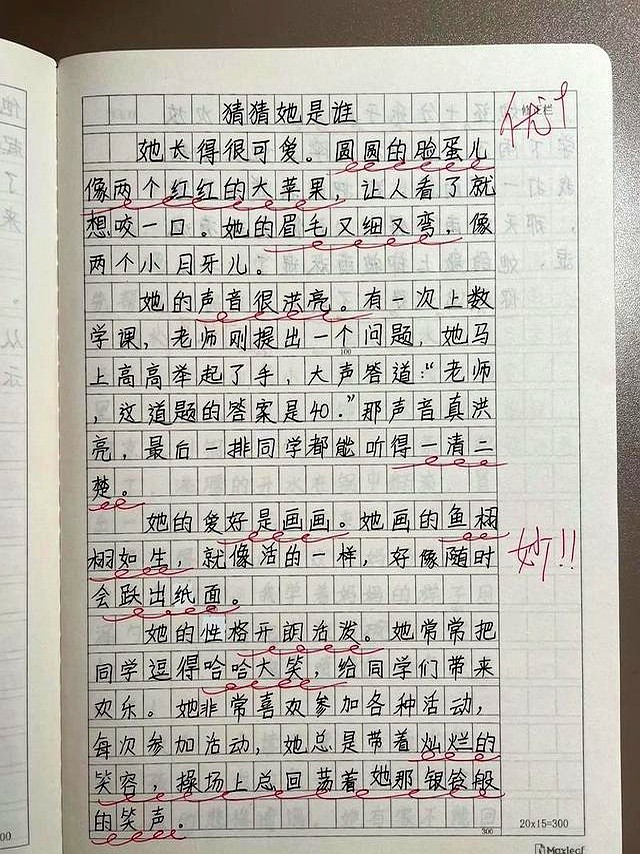 猜猜她是谁
优↑
她长得很可爱。圆圆的脸蛋儿
像两个红红的大苹果，让人看了就
想咬一口。她的眉毛又细又弯，像
两个小月牙儿。
她的声音很洪亮。有一次上数
学课，老师刚提出一个问题，她马
100
上高高举起了手，大声答道：“老师
，这道题的答案是40．”那声音真洪
亮，最后一排同学都能听得一清二
楚。
她的爱好是画画。她画的鱼栩
栩如生，就像活的一样，好像随时
妙!!
会跃出纸面。
她的性格开朗活泼。她常常把
同学逗得哈哈大笑，给同学们带来
欢乐。她非常喜欢参加各种活动，
每次参加活动，她总是带着灿烂的
笑容，操场上总回荡着她那银铃般
的笑声。
300
20x15=300
Maxleaf